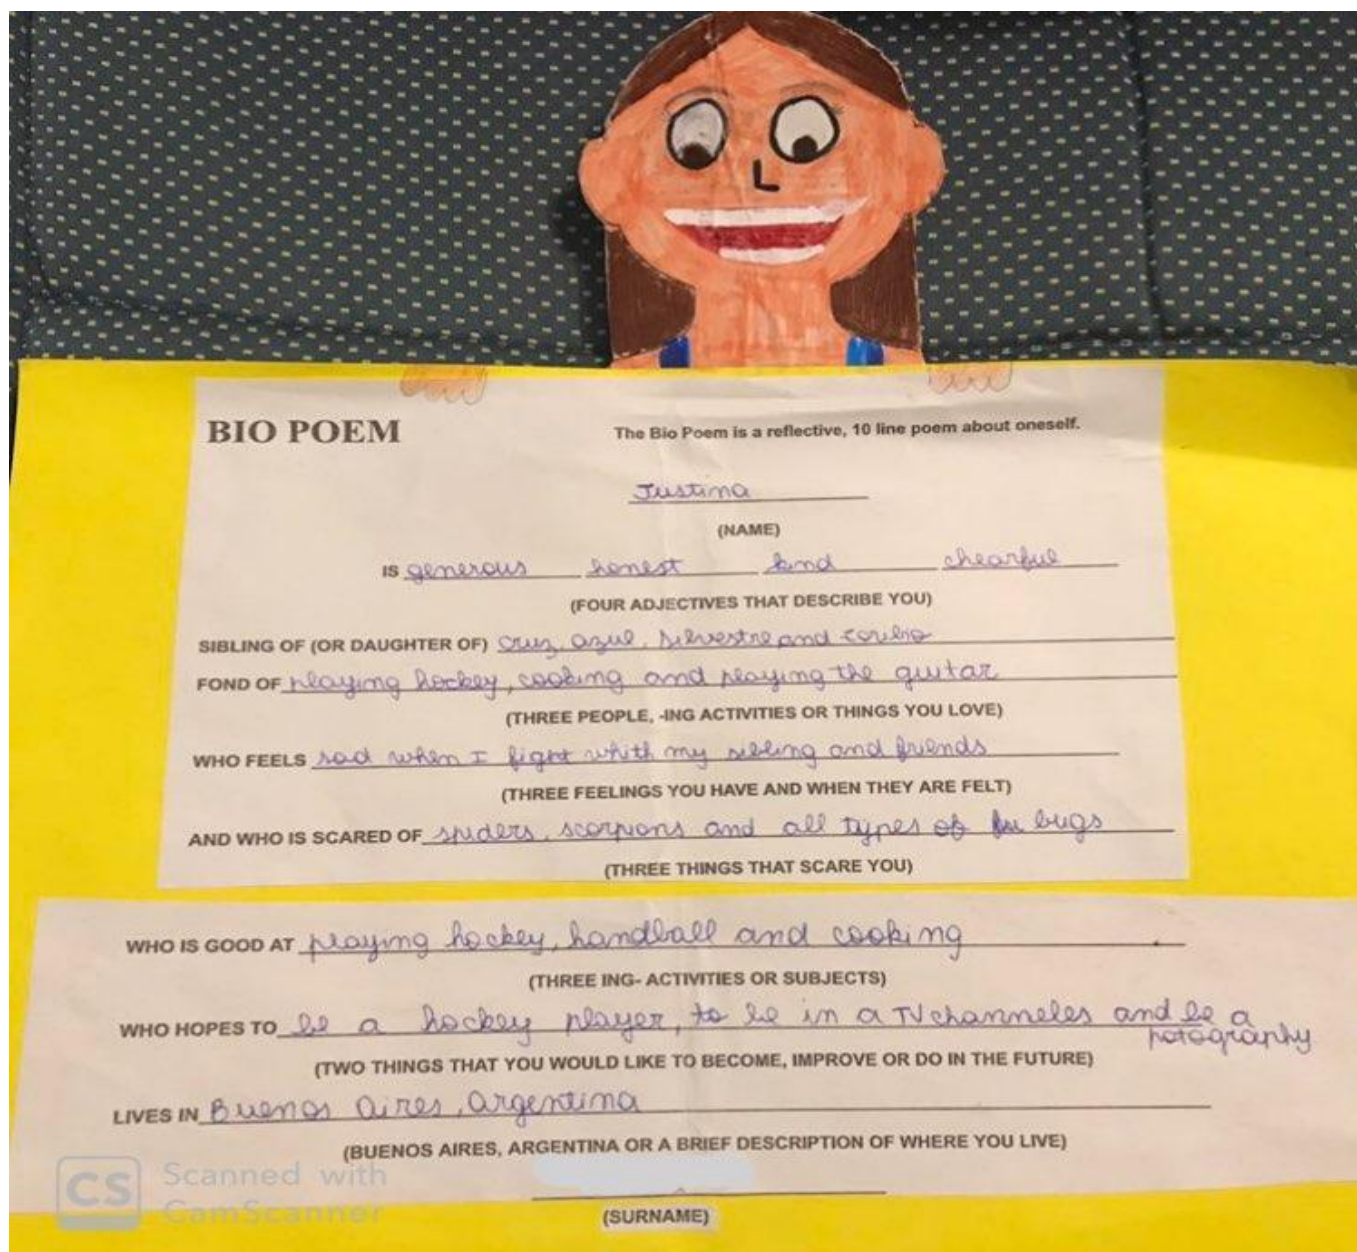 BIO POEM The Bio Poem is a reflective, 10 line poem about oneself.
Justina
(NAME)
IS generous honest kind chearful
(FOUR ADJECTIVES THAT DESCRIBE YOU)
SIBLING OF (OR DAUGHTER OF) cruz, azul, silvestre and
FOND OF playing hockey, cooking and playing the guitar
(THREE PEOPLE, -ING ACTIVITIES OR THINGS YOU LOVE)
WHO FEELS sad when I fight whith my sibling and friends
(THREE FEELINGS YOU HAVE AND WHEN THEY ARE FELT)
AND WHO IS SCARED OF spiders, scorpions and all types of bugs
(THREE THINGS THAT SCARE YOU)
WHO IS GOOD AT playing hockey, handball and cooking
(THREE ING- ACTIVITIES OR SUBJECTS)
WHO HOPES TO be a hockey player, to be in a TV channeles and be a
potography
(TWO THINGS THAT YOU WOULD LIKE TO BECOME, IMPROVE OR DO IN THE FUTURE)
LIVES IN Buenos Aires, Argentina
(BUENOS AIRES, ARGENTINA OR A BRIEF DESCRIPTION OF WHERE YOU LIVE)
CS Scanned with
CamScanner
(SURNAME)